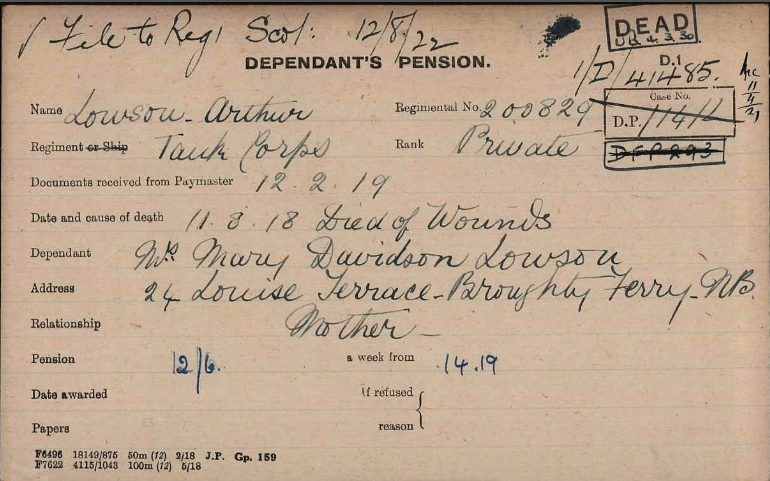 / File to Regl Scot: 12/8/22
DEAD
4.3.30.
DEPENDANT'S PENSION.
D.1
1/D/41485.
Name Lowson - Arthur
Regimental No. 200829
Case No.
D.P. 114/L
Regiment or Ship Tank Corps
Rank Private
DFP293
Documents received from Paymaster 12.2.19
Date and cause of death 11.8.18 Died of Wounds
Dependant Mrs Mary Davidson Lowson
Address 24 Louise Terrace - Broughty Ferry - NB.
Relationship Mother -
Pension 12/6. a week from 1.4.19
Date awarded
If refused
Papers
reason
F6496 18149/875 50m (12) 2/18 J.P. Gp. 159
F7622 4115/1043 100m (12) 5/18